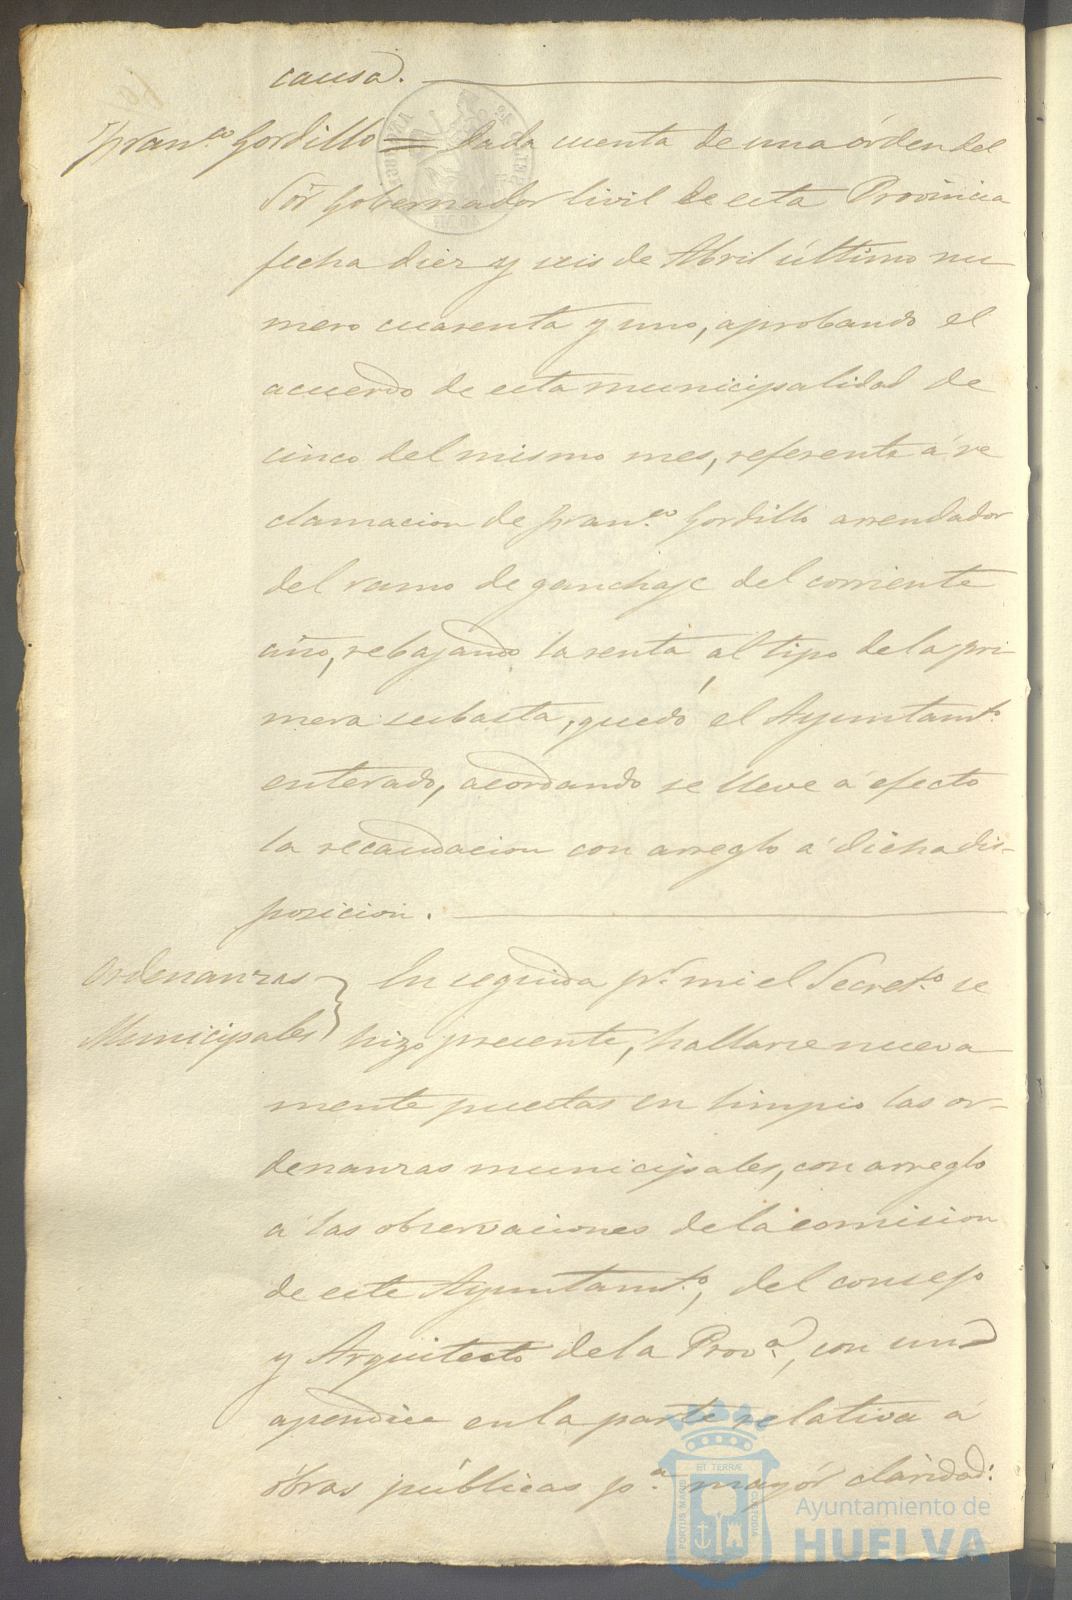 causa.
Fran.co Gordillo = Dada cuenta de una órden del
Sór Gobernador Civil de esta Provincia
fecha diez y seis de Abril último nu
mero cuarenta y uno, aprobando el
acuerdo de esta municipalidad de
cinco del mismo mes, referente á re
clamacion de Fran.co Gordillo arrendador
del ramo de ganchaje del corriente
año, rebajando la renta al tipo de la pri
mera subasta, quedó el Ayuntam.to
enterado, acordando se lleve a efecto
la recaudacion con arreglo á dicha dis-
posicion.
Ordenanzas
Municipales
En seguida p.r mi el Secret.o se
hizo presente, hallarse nueva
mente puestas en limpio las or-
denanzas municipales, con arreglo
á las observaciones de la comision
de este Ayuntam.to, del consejo
y Arquitecto de la Prov.a, con un
apendice en la parte relativa á
óbras públicas p.a mayór claridad:
PORTUS MARIS
ET TERRAE
CUSTODIA
Ayuntamiento de
HUELVA